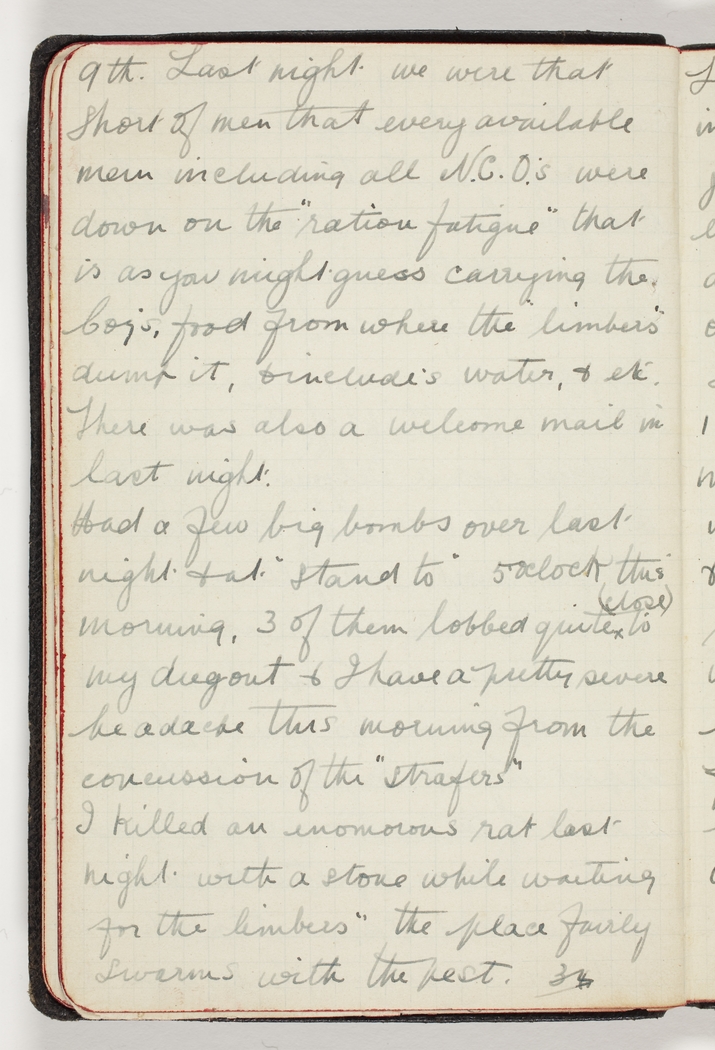 9th. Last night we were that
short of men that every available
man including all N.C.O's were
down on the "ration fatigue" that
is as you might guess carrying the
boys, food from where the "limbers"
dump it, & includes water, & etc.
There was also a welcome mail in
last night.
Had a few big bombs over last
night & at "stand to" 5 oclock this
(close)
morning, 3 of them lobbed quite x to
my dugout & I have a pretty severe
headache this morning from the
concussion of the "strafers"
I killed an enomorous rat last
night with a stone while waiting
for the limbers" the place fairly
swarms with the pest.